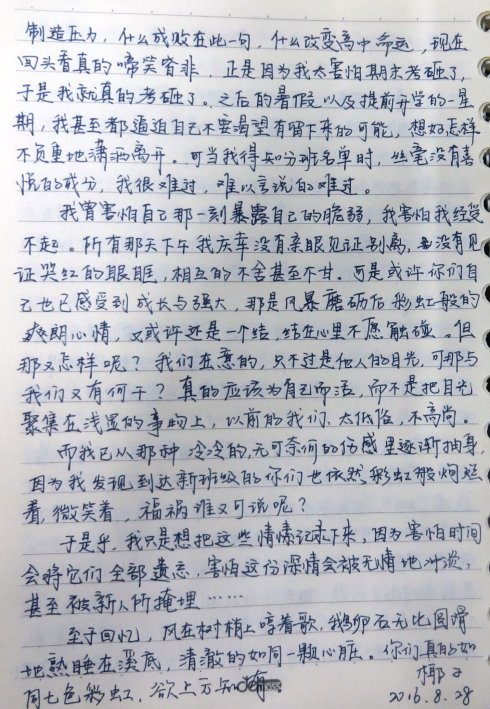 制造压力，什么成败在此一句，什么改变高中命运，现在
回头看真的啼笑皆非，正是因为我太害怕期末考砸了，
于是我就真的考砸了。之后的暑假以及提前开学的一星
期，我甚至都逼迫自己不要渴望有留下来的可能，想好怎样
不负重地潇洒离开。可当我得知分班名单时，丝毫没有喜
悦的成分，我很难过，难以言说的难过。
我害怕自己那一刻暴露自己的脆弱，我害怕我经受
不起。所有那天下午我庆幸没有亲眼见证别离，没有见
证哭红的眼眶，相互的不舍甚至不甘。可是或许你们自
己也已感受到成长与强大，那是风暴磨砺后彩虹般的
爽朗心情，又或许还是一个结，结在心里不愿触碰。但
那又怎样呢？我们在意的，只不过是他人的目光，可那与
我们又有何干？真的应该为自己而活，而不是把目光
聚集在浅显的事物上，以前的我们，太低俗，不高尚。
而我已从那种冷冷的，无可奈何的伤感里逐渐抽身，
因为我发现到达新班级的你们也依然彩虹般灿烂
着，微笑着，福祸谁又可说呢？
于是乎，我只是想把这些情愫记录下来，因为害怕时间
会将它们全部遗忘，害怕这份深情会被无情地冲淡，
甚至被新人所掩埋……
至于回忆，风在树梢上哼着歌，鹅卵石无比圆滑
地熟睡在溪底，清澈的如同一颗心脏。你们真的如
同七色彩虹，欲上云知有
椰子
2016.8.28